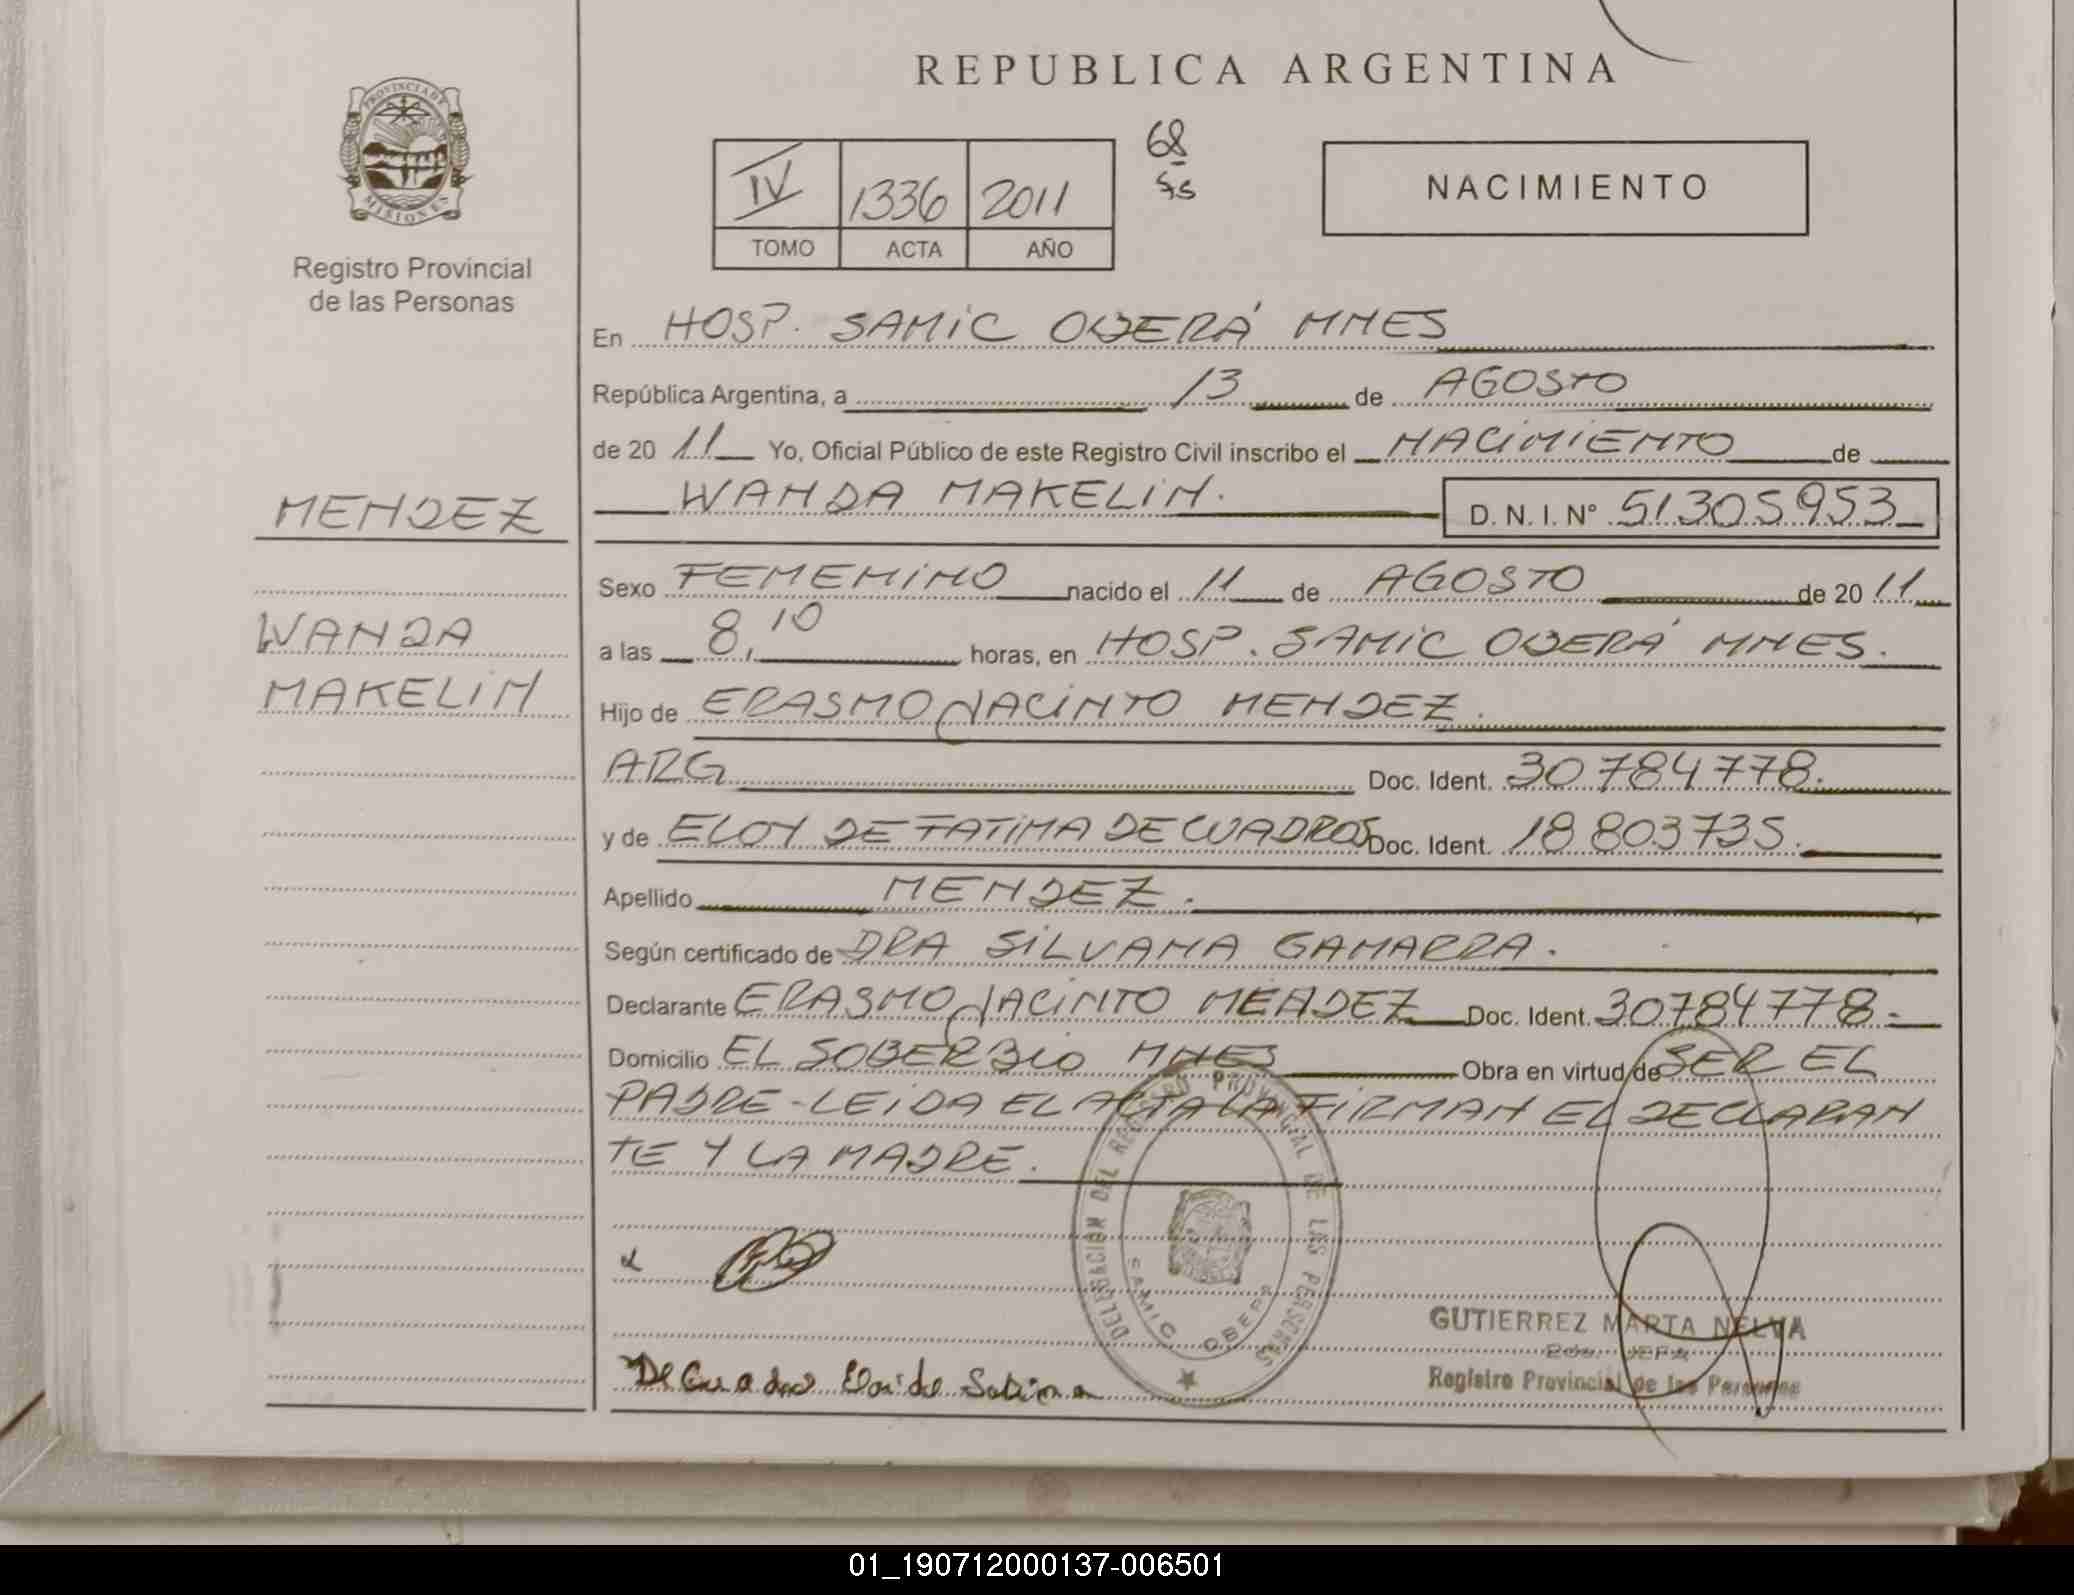 REPUBLICA ARGENTINA
PROVINCIA DE
MISIONES
Registro Provincial
de las Personas
IV 1336 2011
TOMO ACTA AÑO
68
NACIMIENTO
En HOSP. SAMIC OBERÁ MNES
República Argentina, a 13 de AGOSTO
de 20 11 Yo, Oficial Público de este Registro Civil inscribo el NACIMIENTO de
WANDA MAKELIN. D. N. I. N° 51305953
MENDEZ
WANDA
MAKELIN
Sexo FEMENINO nacido el 11 de AGOSTO de 20 11
a las 8,10 horas, en HOSP. SAMIC OBERÁ MNES.
Hijo de ERASMO JACINTO MENDEZ.
ARG Doc. Ident. 30784778.
y de ELOY DE FATIMA DE CUADROS Doc. Ident. 18803735.
Apellido MENDEZ.
Según certificado de DRA SILVANA GAMARRA.
Declarante ERASMO JACINTO MENDEZ Doc. Ident. 30784778.
Domicilio EL SOBERBIO MNES Obra en virtud de SER EL
PADRE-LEIDA EL ACTA LA FIRMAN EL DECLARAN
TE Y LA MADRE.
DELEGACION DEL REGISTRO PROVINCIAL DE LAS PERSONAS
SAMIC OBERA
GUTIERREZ MARTA NELVA
JEFA
Registro Provincial de las Personas
De Cuadros
01_190712000137-006501